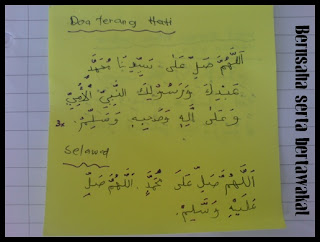 Doa terang Hati
اَللّٰهُمَّ صَلِّ عَلٰى سَيِّدِنَا مُحَمَّدٍ
عَبْدِكَ وَرَسُوْلِكَ النَّبِيِّ الْأُمِّيِّ
وَعَلٰى اٰلِهِ وَصَحْبِهِ وَسَلِّمْ. 3x
Selawat
اَللّٰهُمَّ صَلِّ عَلٰى مُحَمَّدٍ. اَللّٰهُمَّ صَلِّ
عَلَيْهِ وَسَلِّمْ.
Berusaha serta bertawakal